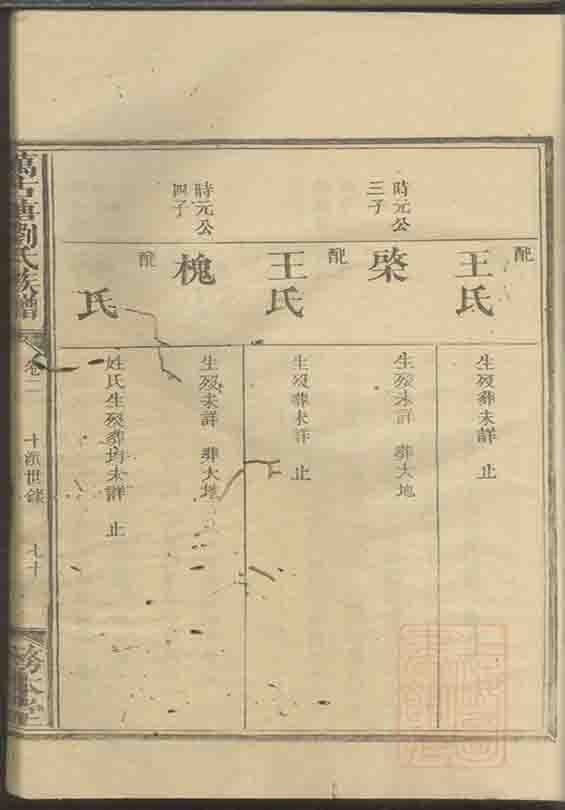 配
王氏
生歿葬未詳 止
時元公
三子
棨
生歿未詳 葬大地
配
王氏
生歿葬未詳 止
時元公
四子
槐
生歿未詳 葬大地
配
氏
姓氏生歿葬均未詳 止
萬古塘劉氏族譜
卷二
世錄
七十
務本堂